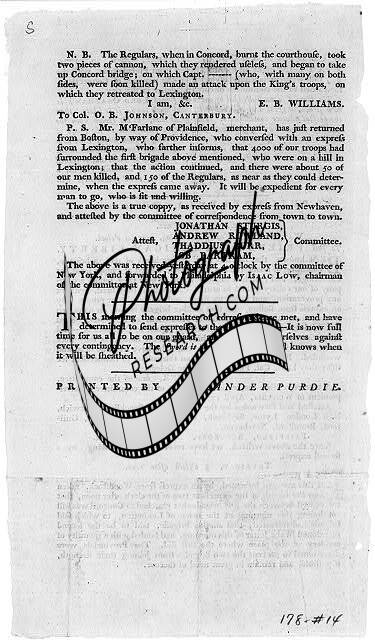 S
N. B. The Regulars, when in Concord, burnt the courthouse, took
two pieces of cannon, which they rendered useless, and began to take
up Concord bridge; on which Capt. —— (who, with many on both
sides, were soon killed) made an attack upon the King's troops, on
which they retreated to Lexington.
I am, &c. E. B. WILLIAMS.
To Col. O. B. JOHNSON, CANTERBURY.
P. S. Mr. M'Farlane of Plainfield, merchant, has just returned
from Boston, by way of Providence, who conversed with an express
from Lexington, who farther informs, that 4000 of our troops had
surrounded the first brigade above mentioned, who were on a hill in
Lexington; that the action continued, and there were about 50 of
our men killed, and 150 of the Regulars, as near as they could deter-
mine, when the express came away. It will be expedient for every
man to go, who is fit and willing.
The above is a true copy, as received by express from Newhaven,
and attested by the committee of correspondence from town to town.
JONATHAN
ANDREW
Attest, THADDEUS Committee.
The above was received o'clock by the committee of
New York, and forwarded to Philadelphia by ISAAC LOW, chairman
of the committee at New
Photograph
RESEARCH.COM
THIS morning the committee of met, and have
determined to send It is now full
time for us all to be on our guard, against
every contingency. The sword is knows when
it will be sheathed.
PRINTED BY PURDIE.
178-#14